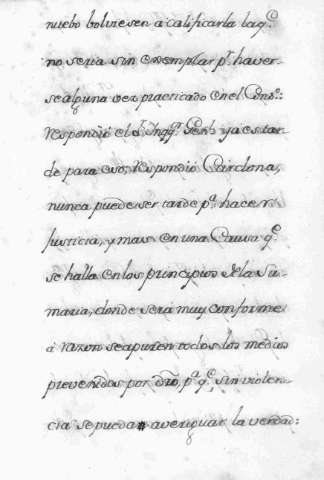 nuebo bolviesen a calificarla la q.e
no seria sin exemplar p.r haver-
se alguna vez practicado en el Cons.o:
Respondió el S.r Inqq.r Gen.l ya es tar-
de para eso; Respondió Cardona,
nunca puede ser tarde p.a hacer
Justicia, y mas en una Causa q.e
se halla en los principios de la Su-
maria, donde será muy conforme
á razon se apuren todos los medios
prevenidos por dro, p.a q.e sin violen-
cia se pueda averiguar la verdad: